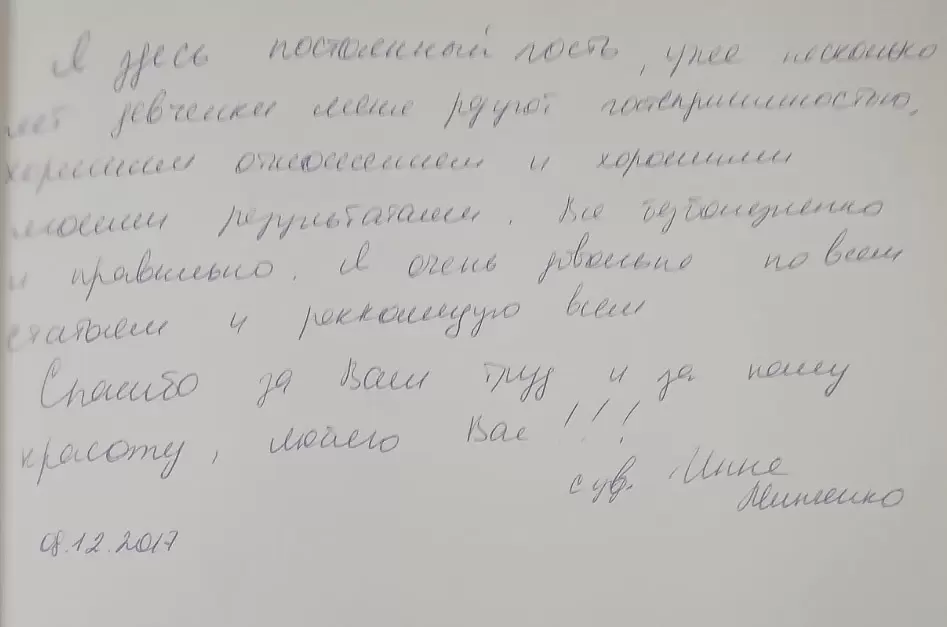 Я здесь постоянный гость, уже несколько
лет девченки меня радуют гостеприимностью,
хорошим отношением и хорошими
моими результатами. Все безболезненно
и правильно. Я очень довольна по всем
статьям и реккомендую всем
Спасибо за Ваш труд и за нашу
красоту, люблю Вас!!!
с ув. Инна
08.12.2017